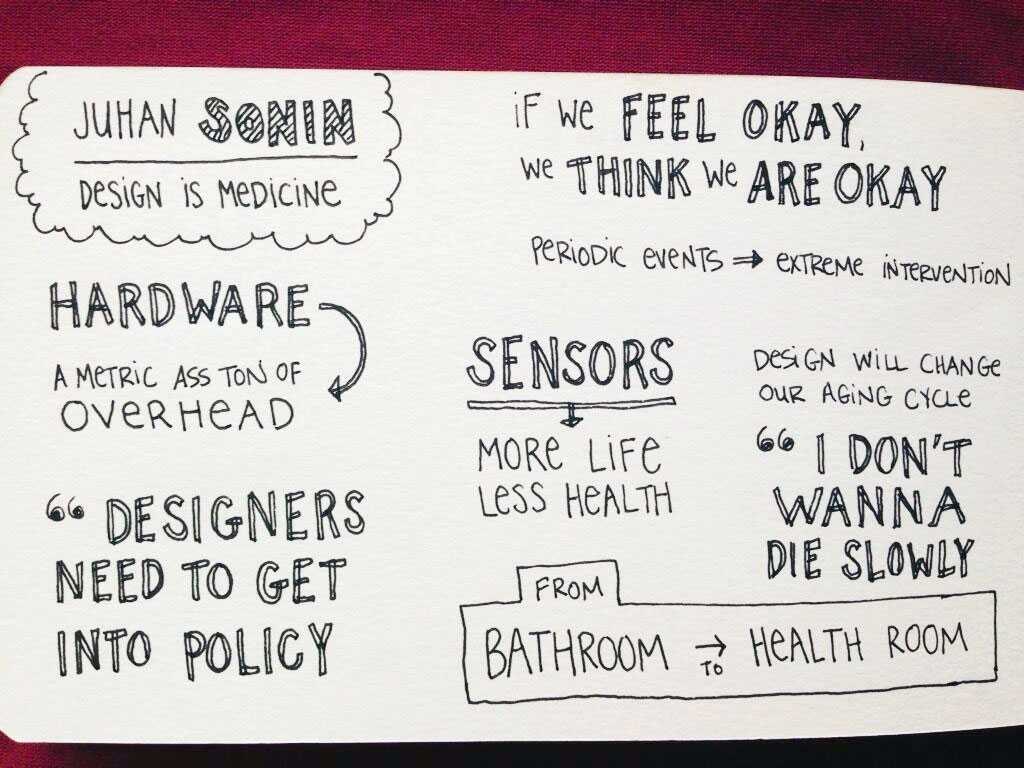 JUHAN SONIN
DESIGN IS MEDICINE
HARDWARE
A METRIC ASS TON OF
OVERHEAD
“ DESIGNERS
NEED TO GET
INTO POLICY
IF WE FEEL OKAY,
WE THINK WE ARE OKAY
PERIODIC EVENTS ⇒ EXTREME INTERVENTION
SENSORS
MORE LIFE
LESS HEALTH
DESIGN WILL CHANGE
OUR AGING CYCLE
“ I DON'T
WANNA
DIE SLOWLY
FROM
BATHROOM → TO HEALTH ROOM